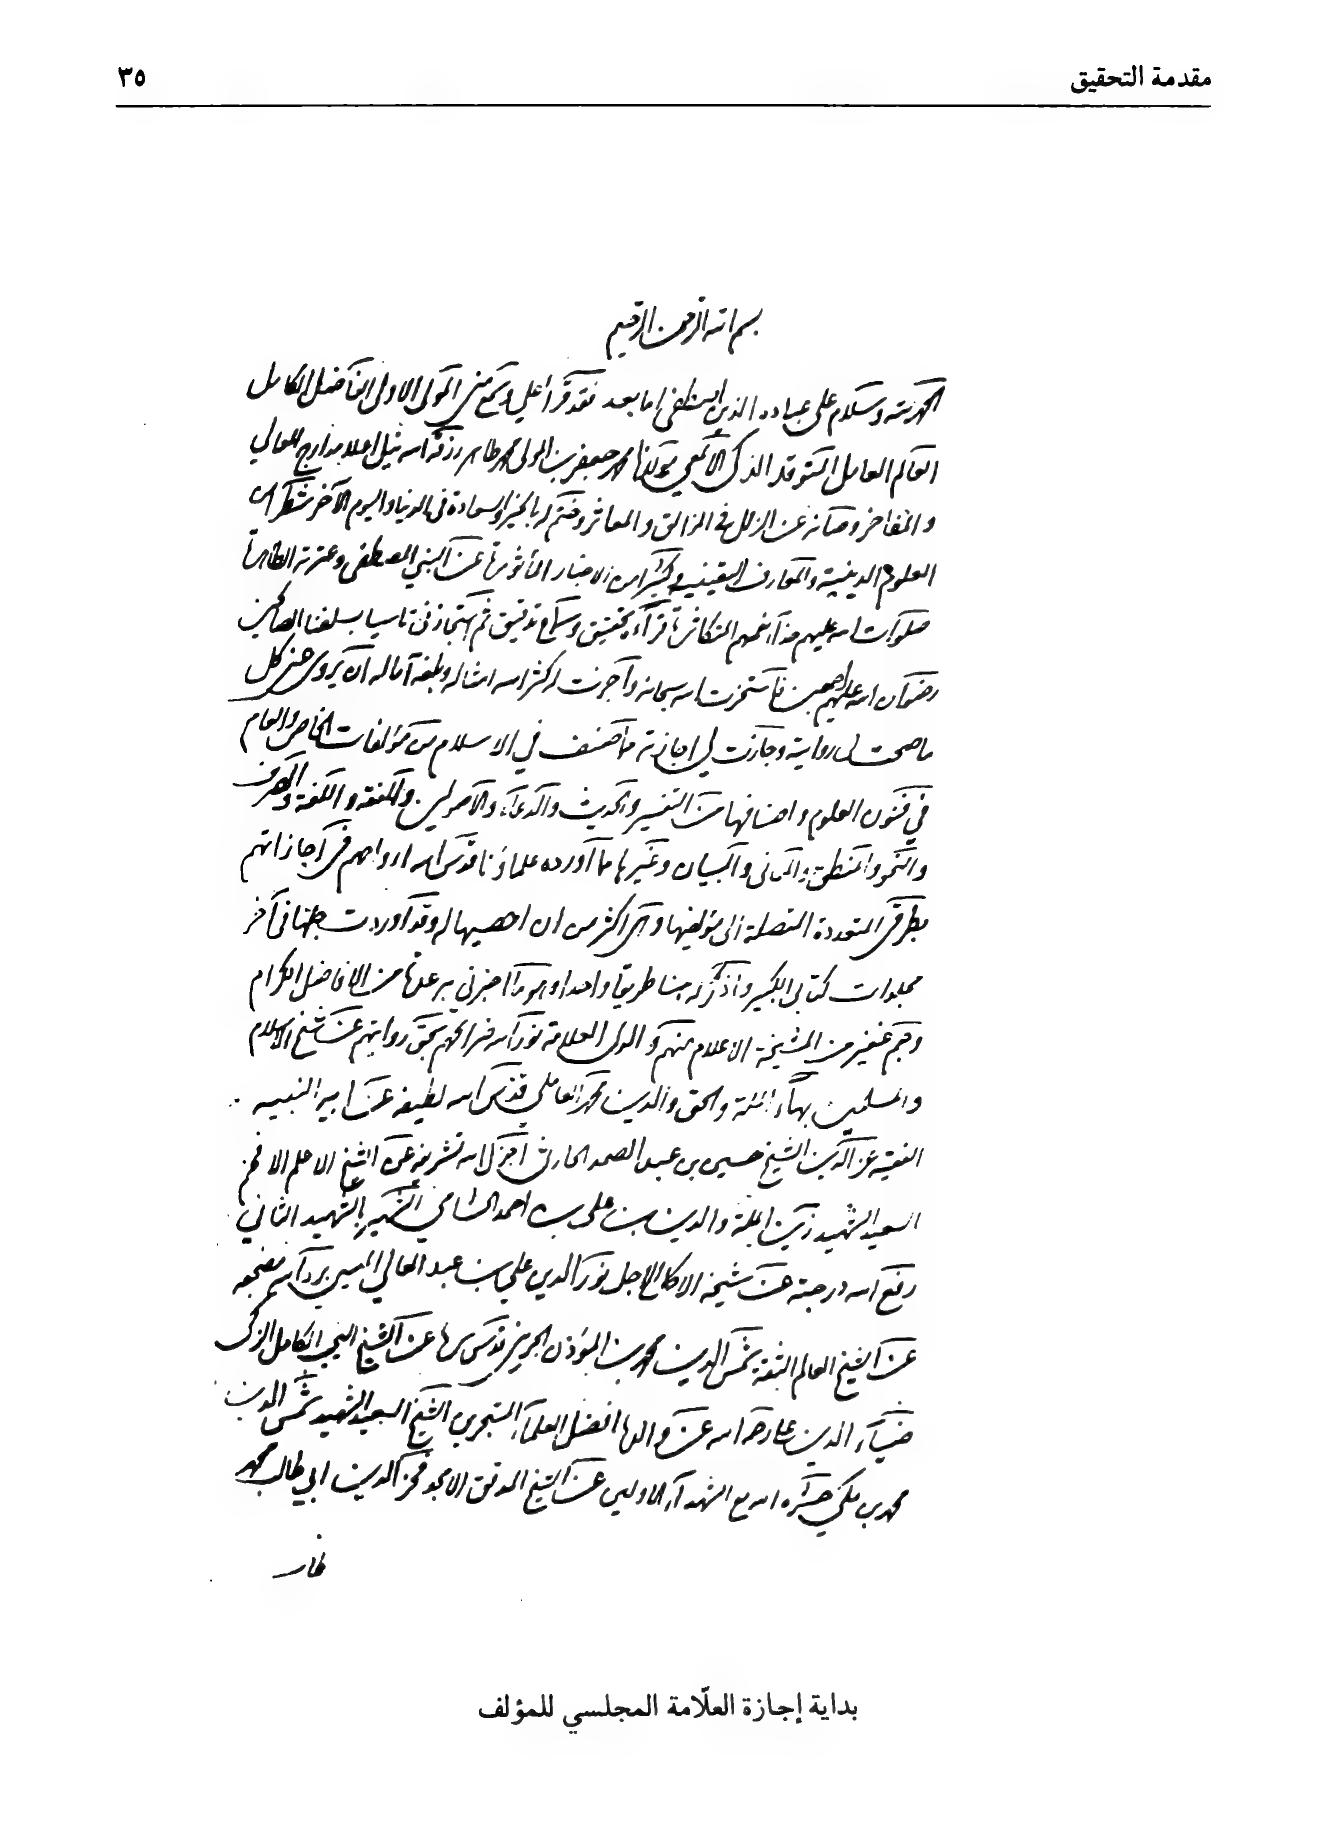 مقدمة التحقيق ٣٥
بسم الله الرحمن الرحيم
الحمد لله وسلام على عباده الذين اصطفى اما بعد فقد قرأ علي وسمع مني المولى الاولى الفاضل الكامل
العالم العامل المتوقد الذكي الألمعي مولانا محمد جعفر بن المولى محمد طاهر رزقه الله نيل اعلا مدارج المعالي
والمفاخر وصانه عن الزلل في المزالق والمعاثر وختم له بالخير والسعادة في الدنيا واليوم الآخر شطرا من
العلوم الدينية والمعارف اليقينية وكثيرا من الاخبار المأثورة عن النبي المصطفى وعترته الطاهرة
صلوات الله عليهم قراءة تحقيق وسماع تدقيق ثم استجازني تاسيا بسلفنا الصالحين
رضوان الله عليهم اجمعين فاستخرت الله سبحانه وأجزت له كثر الله امثاله وبلغه آماله أن يروي عني كل
ما صحت لي روايته وجازت لي اجازته مما صنف في الاسلام من مؤلفات الخاص والعام
في فنون العلوم واصنافها من التفسير والحديث والدعاء والأصولين والفقه واللغة والصرف
والنحو والمنطق والمعاني والبيان وغيرها مما أورده علماؤنا قدس الله ارواحهم في اجازاتهم
بطرقي المتعددة المتصلة الى مؤلفيها وهي اكثر من ان احصيها له وقد أوردت جلها في آخر
مجلدات كتابي الكبير واذكر له هنا طريقا واحدا وهو ما اخبرني به عدة من الافاضل الكرام
وجم غفير من المشيخة الاعلام منهم والدي العلامة نور الله ضرائحهم بحق روايتهم عن شيخ الاسلام
والمسلمين بهاء الملة والحق والدين محمد العاملي قدس الله لطيفه عن ابيه النبيه
الفقيه عز الدين الشيخ حسين بن عبد الصمد الحارثي أجزل الله تشريفه عن الشيخ الاعلم الافخم
السعيد الشهيد زين الملة والدين بن علي بن احمد الشامي الشهير بالشهيد الثاني
رفع الله درجته عن شيخه الاجل نور الدين علي بن عبد العالي الميسي برد الله مضجعه
عن الشيخ العالم الثقة شمس الدين محمد بن المؤذن الجزيني قدس سرهما عن الشيخ الكامل الزكي
ضياء الدين علي رحمه الله عن والده افضل العلماء المتبحرين الشيخ السعيد الشهيد شمس الدين
محمد بن مكي حشره الله مع الشهداء الاولين عن الشيخ المدقق الامجد فخر الدين ابي طالب محمد
بداية إجازة العلّامة المجلسي للمؤلف